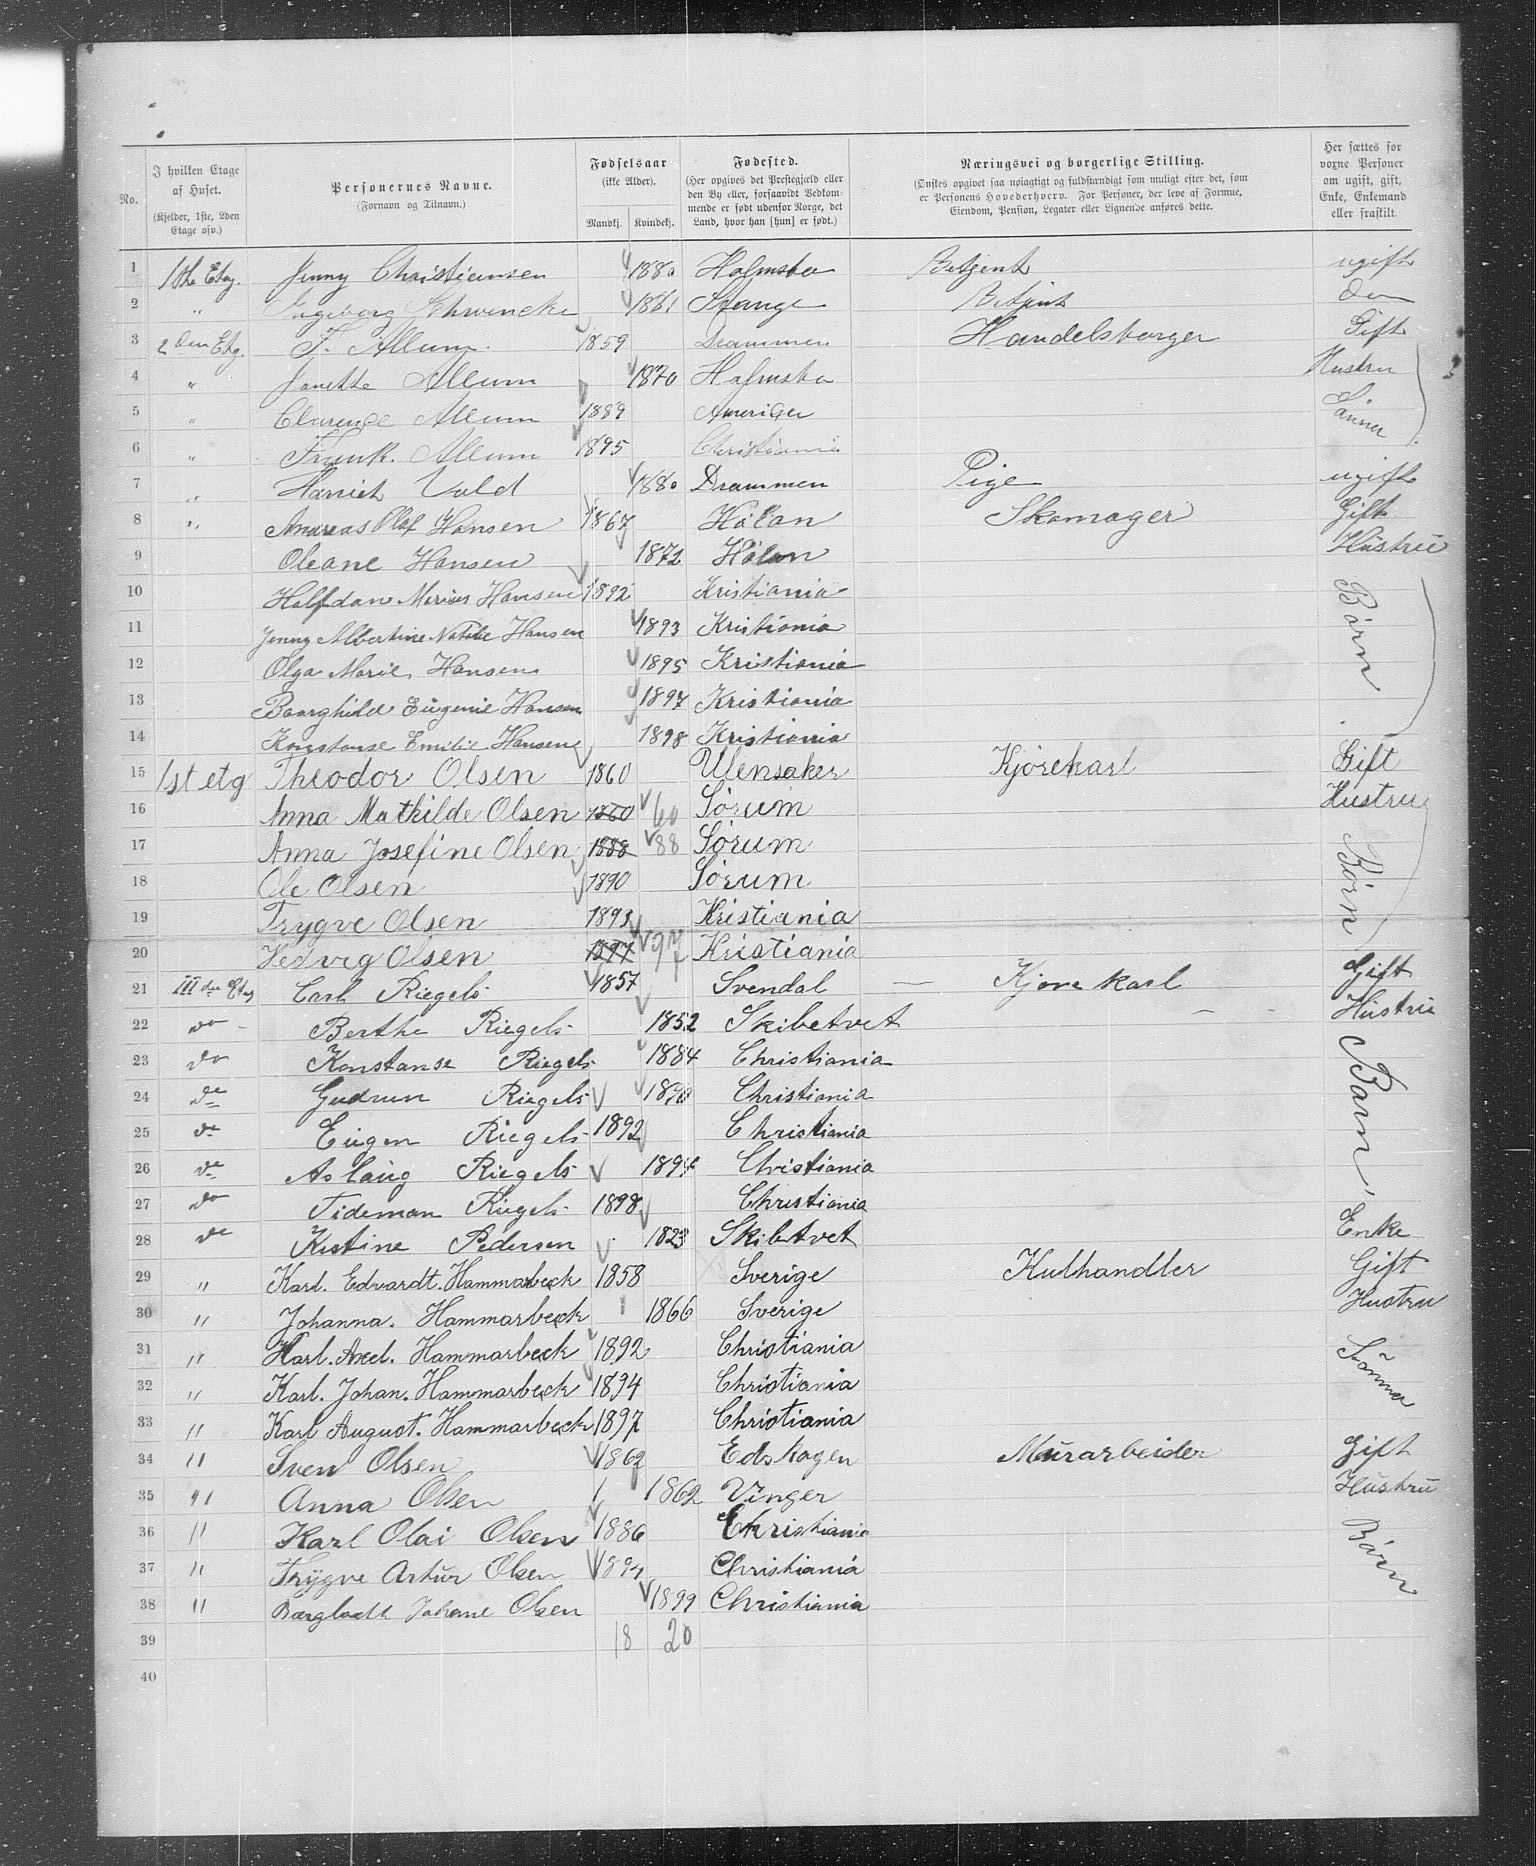 No. | I hvilken Etage af Huset. (Kjelder, 1ste, 2den Etage osv.) | Personernes Navne. (Fornavn og Tilnavn.) | Fødselsaar (ikke Alder). Mandkj. | Kvindekj. | Fødested. (Her opgives det Prestegjæld eller den By eller, forsaavidt Vedkommende er født udenfor Norge, det Land, hvor han [hun] er født.) | Næringsvei og borgerlige Stilling. (Ønskes opgivet saa nøiagtigt og fuldstændigt som muligt efter det, som er Personens Hovederhverv. For Personer, der leve af Formue, Eiendom, Pension, Legater eller Lignende anføres dette. | Her sættes for voxne Personer om ugift, gift, Enke, Enkemand eller fraskilt.
1 | 1ste Etag. | Jenny Christjansen | | 1880 | Holmsbo | Betjent | ugift
2 | " | Ingeborg Schwencke | | 1881 | Stange | Betjent | do
3 | 2den Etg. | F. Allum | 1859 | | Drammen | Handelsborger | Gift
4 | " | Janette Allum | | 1870 | Holmsbo | | Hustru
5 | " | Clarence Allum | 1889 | | Amerika | | Sønner
6 | " | Frank. Allum | 1895 | | Christiania
7 | " | Harriet Vold | | 1880 | Drammen | Pige | ugift
8 | " | Andreas Olaf Hansen | 1867 | | Høland | Skomager | Gift
9 | | Oleane Hansen | | 1872 | Hölan | | Hustru
10 | | Halfdan Marius Hansen | 1892 | | Kristiania | | Børn
11 | | Jenny Albertine Natalie Hansen | | 1893 | Kristiania
12 | | Olga Marie Hansen | | 1895 | Kristiania
13 | | Boarghild Eugenie Hansen | | 1897 | Kristiania
14 | | Konstanse Emilie Hansen | | 1898 | Kristiania
15 | 1st etg | Theodor Olsen | 1860 | | Ulensaker | Kjørekarl | Gift
16 | | Anna Mathilde Olsen | 1860 | 60 | Sørum | | Hustru
17 | | Anna Josefine Olsen | 1888 | 88 | Sørum | | Børn
18 | | Ole Olsen | 1890 | | Sørum
19 | | Trygve Olsen | 1893 | | Kristiania
20 | | Hedvig Olsen | 1897 | 97 | Kristiania
21 | III die Etag | Carl Riegels | 1857 | | Svendal | Kjørekarl | Gift
22 | do | Berthe Riegels | | 1852 | Skibetvet | | Hustru
23 | do | Konstanse Riegels | | 1884 | Christiania | | Barn
24 | do | Gudrun Riegels | | 1890 | Christiania
25 | do | Eugen Riegels | 1892 | | Christiania
26 | do | Aslaug Riegels | | 1894 | Christiania
27 | do | Tideman Riegels | 1898 | | Christiania
28 | do | Kistine Pedersen | | 1823 | Skibtvet | | Enke
29 | " | Karl. Edvardt. Hammarbeck | 1858 | | Sverige | Kulhandler | Gift
30 | " | Johanna. Hammarbeck | | 1866 | Sverige | | Hustru
31 | " | Karl. Axel. Hammarbeck | 1892 | | Christiania | | Sönner
32 | " | Karl. Johan. Hammarbeck | 1894 | | Christiania
33 | " | Karl August. Hammarbeck | 1897 | | Christiania
34 | " | Sven Olsen | 1862 | | Edskogen | Murarbeider | Gift
35 | " | Anna Olsen | | 1862 | Vinger | | Hustru
36 | " | Karl Olai Olsen | 1886 | | Christiania | | Børn
37 | " | Thrygve Artur Olsen | 1894 | | Christiania
38 | " | Johane Olsen | | 1899 | Christiania
39 | | | 18 | 20
40